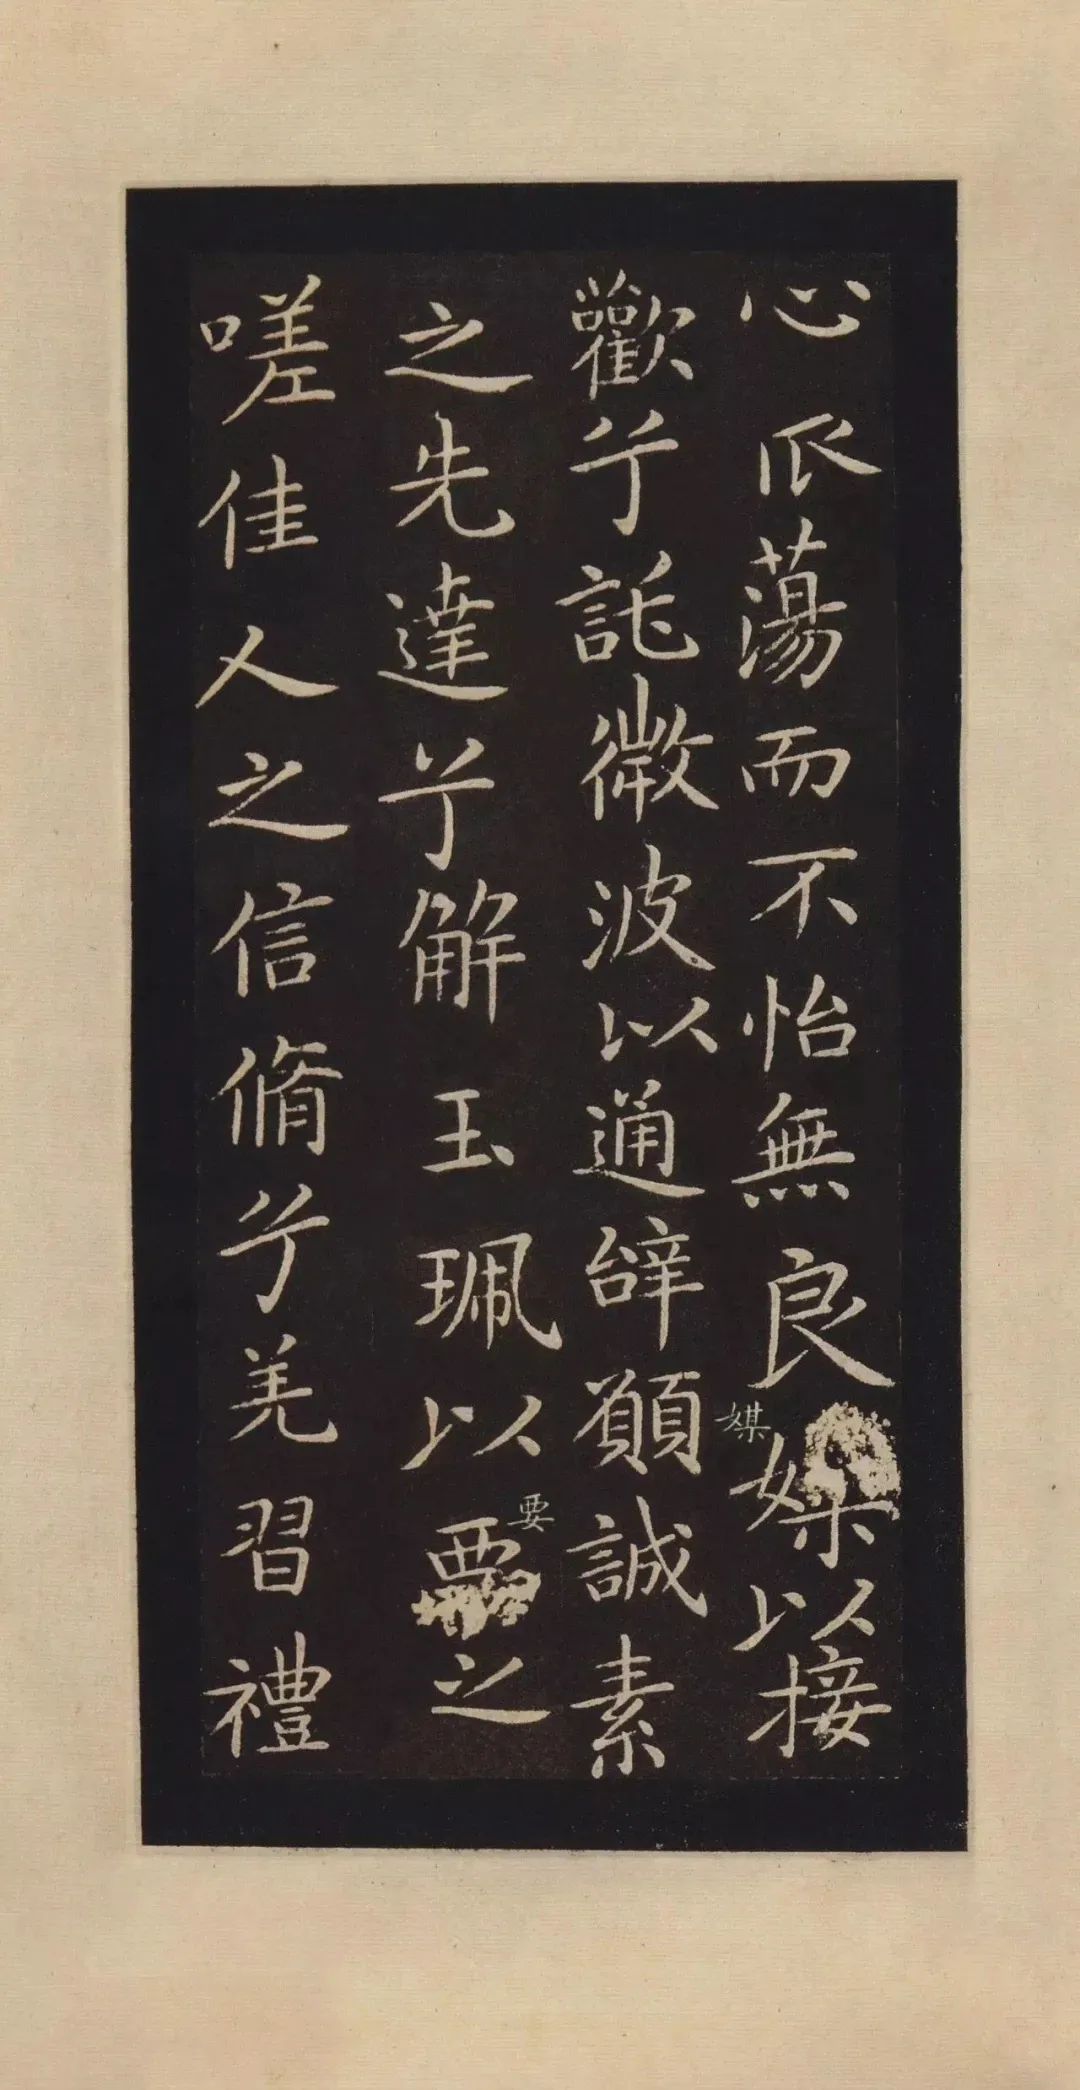 心㳷蕩而不怡無良媒以接
媒
歡兮託微波以通辭願誠素
之先達兮解玉珮以要之
要
嗟佳人之信脩兮羌習禮